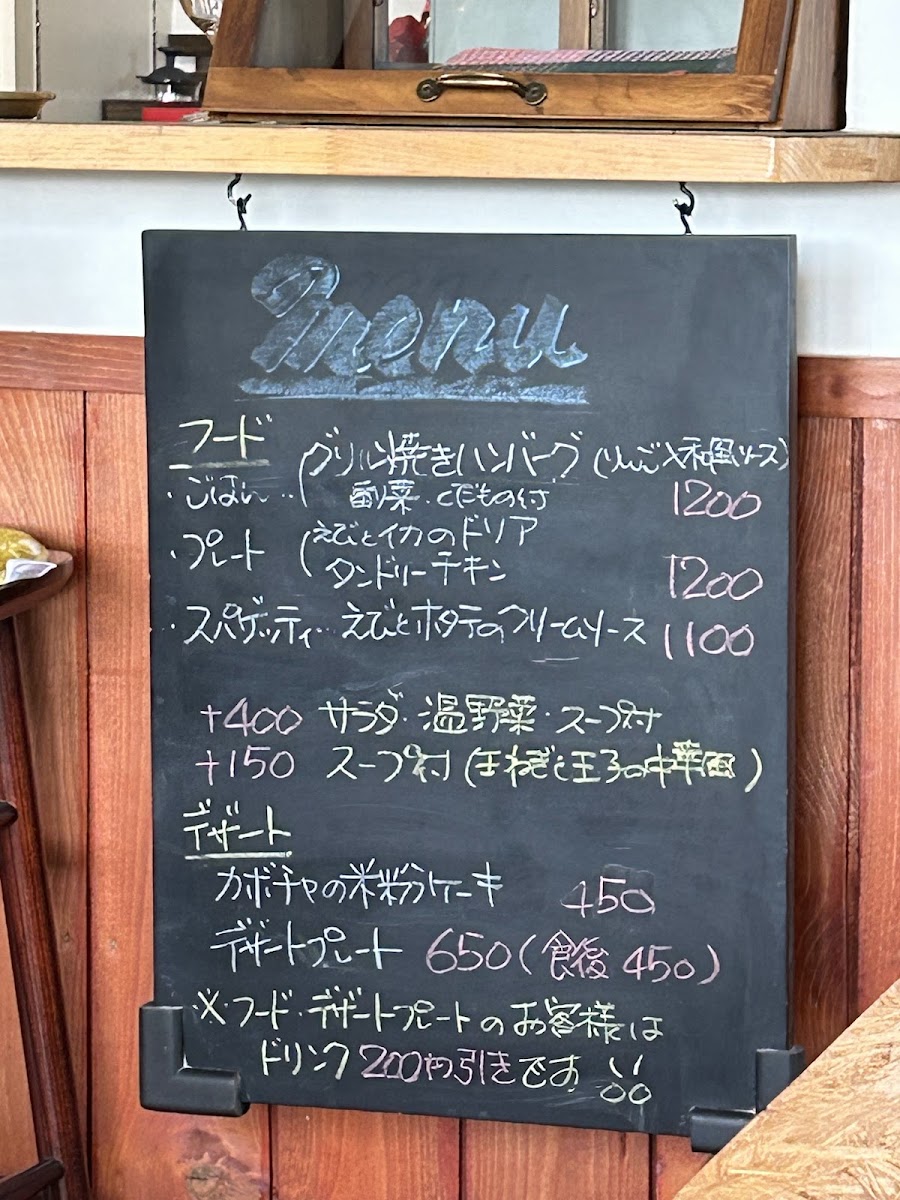 Menu
フード
・ごはん‥ グリル焼きハンバーグ (りんご入和風ソース)
副菜・くだもの付 1200
・プレート えびとイカのドリア
タンドリーチキン 1200
・スパゲッティ‥ えびとホタテのクリームソース 1100
+400 サラダ・温野菜・スープ付
+150 スープ付 (玉ねぎと玉子の中華風)
デザート
カボチャの米粉ケーキ 450
デザートプレート 650 (食後 450)
※・フード・デザートプレートのお客様は
ドリンク200円引きです